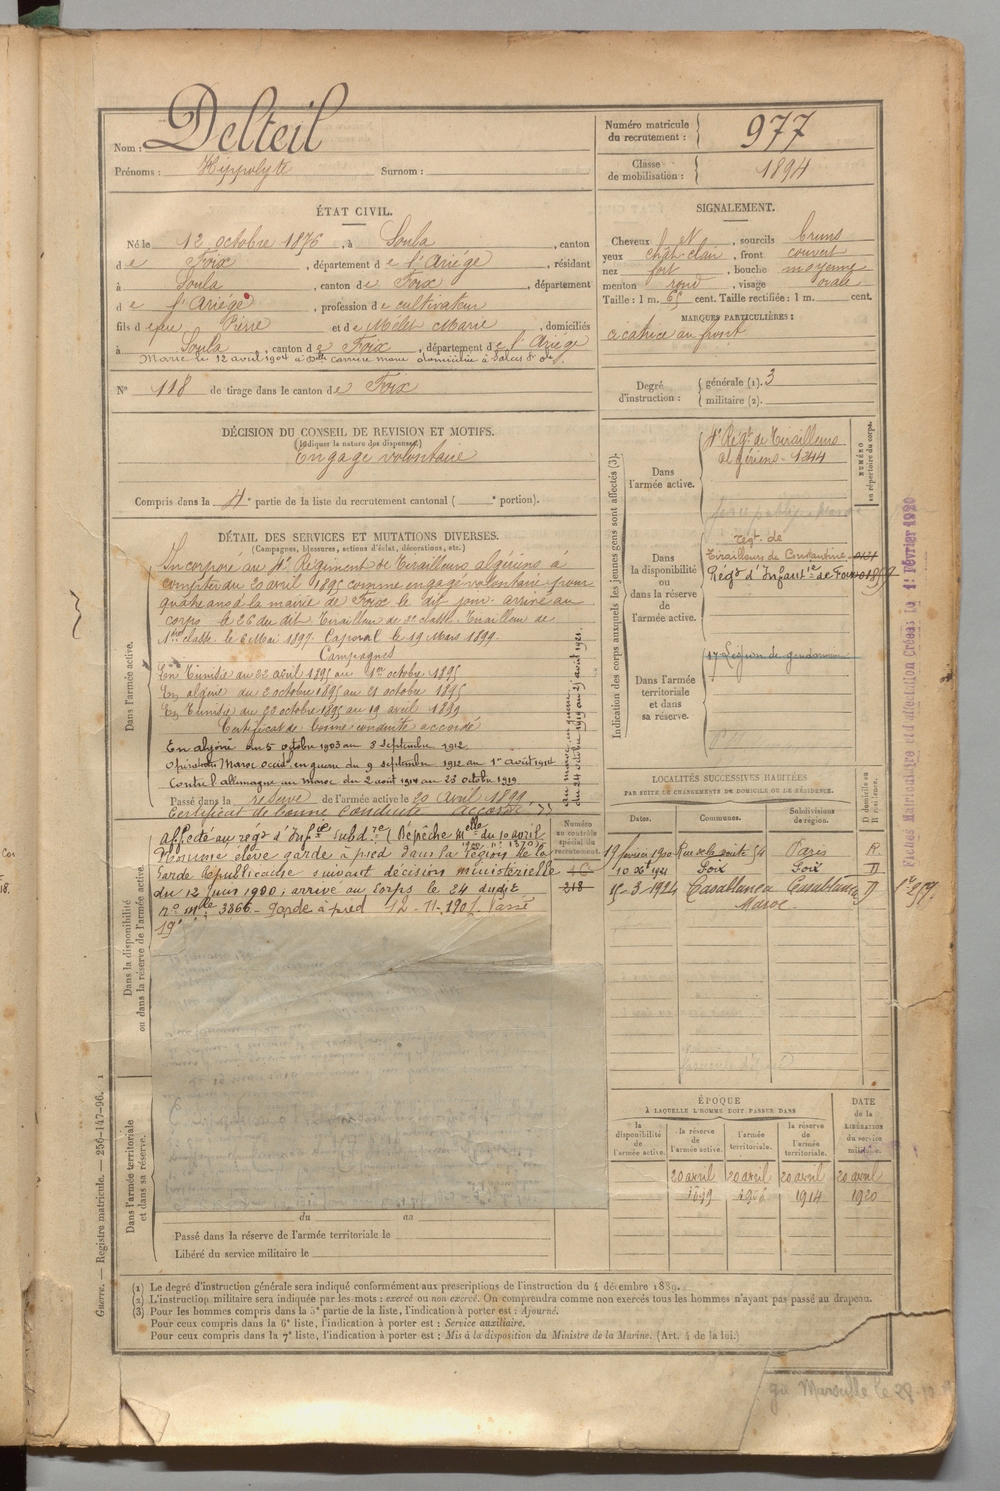 Nom : Delteil
Prénoms : Hippolyte Surnom :
Numéro matricule du recrutement : 977
Classe de mobilisation : 1894
ÉTAT CIVIL.
Né le 12 octobre 1876, à Soula, canton
de Foix, département de l'Ariége, résidant
à Soula, canton de Foix, département
de l'Ariége, profession de cultivateur
fils de feu Pierre et de Mélet Marie, domiciliés
à Soula, canton de Foix, département de l'Ariége
Marié le 12 avril 1904 à Dlle Carrière Marie domiciliée à
N° 118 de tirage dans le canton de Foix
SIGNALEMENT.
Cheveux et, sourcils bruns
yeux chât. clair, front couvert
nez fort, bouche moyenne
menton rond, visage ovale
Taille : 1 m. 65 cent. Taille rectifiée : 1 m. cent.
MARQUES PARTICULIÈRES :
cicatrice au front
Degré d'instruction : générale (1). 3
militaire (2).
DÉCISION DU CONSEIL DE REVISION ET MOTIFS.
(Indiquer la nature des dispenses.)
Engagé volontaire
Compris dans la 4e partie de la liste du recrutement cantonal ( e portion).
DÉTAIL DES SERVICES ET MUTATIONS DIVERSES.
(Campagnes, blessures, actions d'éclat, décorations, etc.)
Dans l'armée active.
Incorporé au 4e Régiment de Tirailleurs algériens à
compter du 20 avril 1895 comme engagé volontaire pour
quatre ans à la mairie de Foix le dit jour. arrivé au
corps le 26 du dit. Tirailleur de 2e classe. Tirailleur de
1ère classe le 6 Mai 1897. Caporal le 19 Mars 1899.
Campagnes
En Tunisie du 22 avril 1895 au 1er octobre 1895
En algérie du 2 octobre 1895 au 21 octobre 1895
En Tunisie du 22 octobre 1895 au 19 avril 1899
Certificat de bonne conduite accordé
En algérie du 5 octobre 1903 au 8 septembre 1912
Opérations Maroc occid. en guerre du 9 septembre 1912 au 1er août 1914
Contre l'allemagne au maroc du 2 août 1914 au 23 octobre 1919
au maroc en guerre
du 24 octobre 1919 au 25 août 1921.
Passé dans la réserve de l'armée active le 20 avril 1899
Certificat de bonne conduite accordé
Dans la disponibilité ou dans la réserve de l'armée active.
Affecté au régt d'Infie subdre (Dépêche mlle du 10 avril
Nommé élève garde à pied dans la Légion de la
Garde Républicaine suivant décision ministérielle
du 12 Juin 1900; arrivé au corps le 24 dudit
n° mlle 3866 - Garde à pied 12-11-1901. Passé
19
Numéro au contrôle spécial du recrutement.
218
Dans l'armée territoriale et dans sa réserve.
du au
Passé dans la réserve de l'armée territoriale le
Libéré du service militaire le
Indication des corps auxquels les jeunes gens sont affectés (3).
NUMÉRO au répertoire du corps.
Dans l'armée active.
4e Régt de Tirailleurs
algériens - 1344
Dans la disponibilité ou dans la réserve de l'armée active.
régt. de
Tirailleurs de Constantine
Régt d'Infantie de Foix
Dans l'armée territoriale et dans sa réserve.
17e Légion de gendarmerie
LOCALITÉS SUCCESSIVES HABITÉES
PAR SUITE DE CHANGEMENTS DE DOMICILE OU DE RÉSIDENCE.
Dates. Communes. Subdivisions de région. D domicile ou R résidence.
19 février 1900 Rue de la santé 54 Paris R
10 Xbre 1921 Foix Foix D
15-3-1924 Casablanca Casablanca D
Maroc.
ÉPOQUE
À LAQUELLE L'HOMME DOIT PASSER DANS
DATE de la LIBÉRATION du service militaire.
la disponibilité de l'armée active.
la réserve de l'armée active.
l'armée territoriale.
la réserve de l'armée territoriale.
20 avril 20 avril 20 avril 20 avril
1899 1906 1914 1920
(1) Le degré d'instruction générale sera indiqué conformément aux prescriptions de l'instruction du 4 décembre 1889.
(2) L'instruction militaire sera indiquée par les mots : exercé ou non exercé. On comprendra comme non exercés tous les hommes n'ayant pas passé au drapeau.
(3) Pour les hommes compris dans la 5e partie de la liste, l'indication à porter est : Ajourné.
Pour ceux compris dans la 6e liste, l'indication à porter est : Service auxiliaire.
Pour ceux compris dans la 7e liste, l'indication à porter est : Mis à la disposition du Ministre de la Marine. (Art. 4 de la loi.)
Guerre. — Registre matricule. — 256-147-96.
Fiches Matriculaire et d'affectation Créées le 1er Février 1920
Marseille le